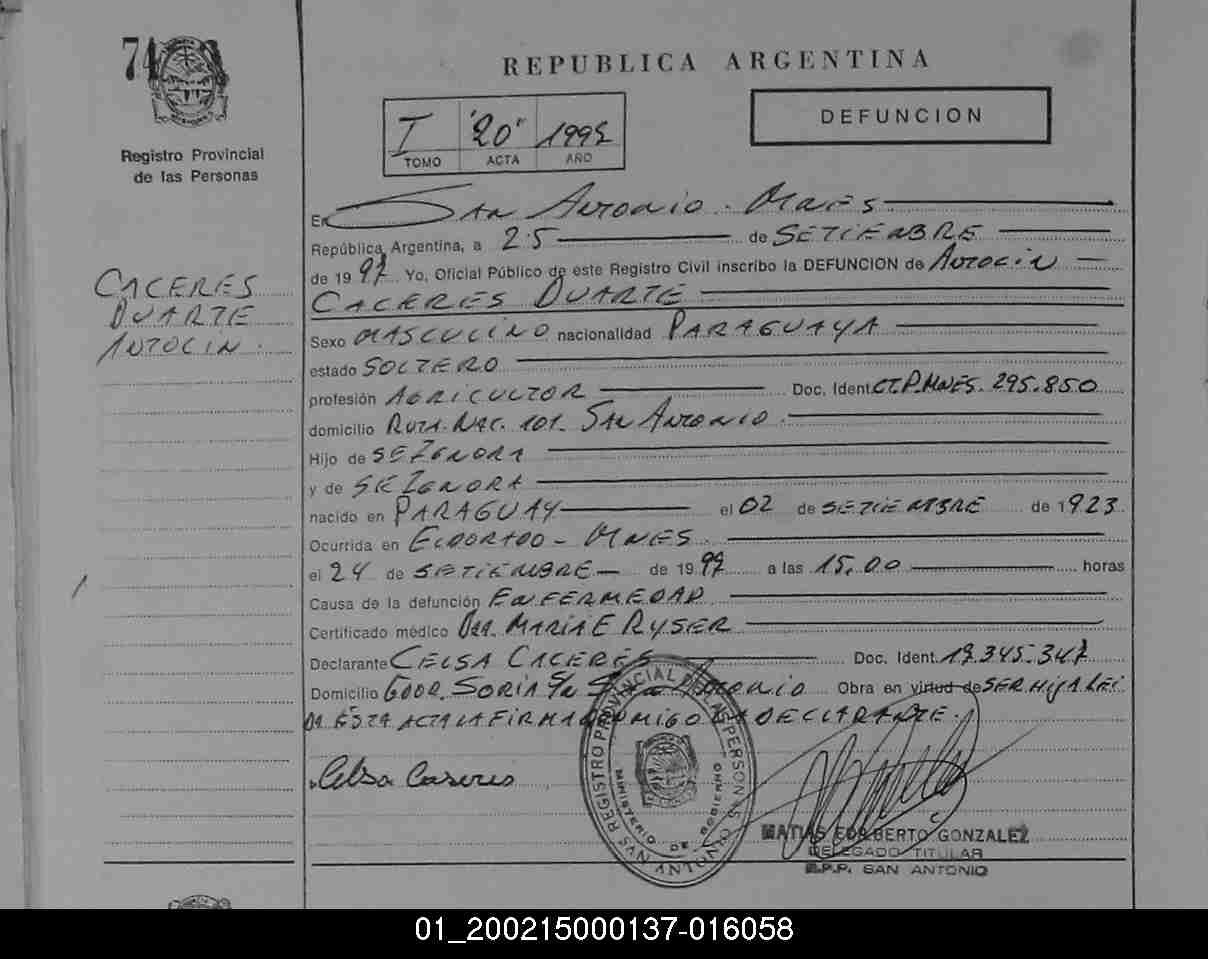 74
REPUBLICA ARGENTINA
DEFUNCION
I "20" 1997
TOMO ACTA AÑO
Registro Provincial
de las Personas
CACERES
DUARTE
ANTOLIN.
En SAN ANTONIO. MNES
República Argentina, a 25 de SETIEMBRE
de 1997. Yo, Oficial Público de este Registro Civil inscribo la DEFUNCION de ANTOLIN
CACERES DUARTE
Sexo MASCULINO nacionalidad PARAGUAYA
estado SOLTERO
profesión AGRICULTOR Doc. Ident. CT.P.MNES. 295.850
domicilio RUTA. NAC. 101. SAN ANTONIO.
Hijo de SE IGNORA
y de SE IGNORA
nacido en PARAGUAY el 02 de SETIEMBRE de 1923
Ocurrida en ELDORADO - MNES
el 24 de SETIEMBRE de 1997 a las 15.00 horas
Causa de la defunción ENFERMEDAD
Certificado médico Dra. MARIA E RYSER
Declarante CELSA CACERES Doc. Ident. 17.345.347
Domicilio GDOR. SORIA S/N SAN ANTONIO Obra en virtud de SER HIJA LEI
DA ESTA ACTA LA FIRMA CONMIGO LA DECLARANTE.
Celsa Caseres
REGISTRO PROVINCIAL DE LAS PERSONAS
MINISTERIO DE GOBIERNO
MATIAS EDILBERTO GONZALEZ
DELEGADO TITULAR
R.P.P. SAN ANTONIO
01_200215000137-016058